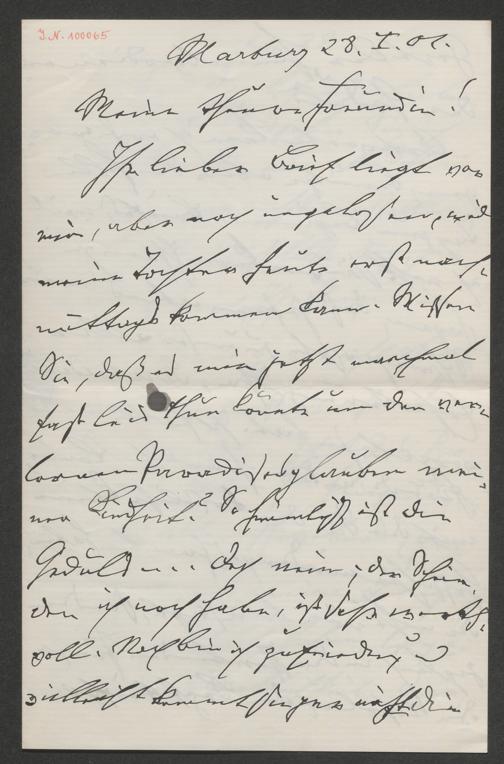 I.N. 100065
Marburg 28. I. 01.
Meine theure Freundin!
Ihr lieber Brief liegt vor
mir, aber noch ungelesen, weil
meine Tochter heute erst nach-
mittags kommen kann. Wissen
Sie, daß es mir jetzt manchmal
fast leid thun könnte um den ver-
lornen Paradiesesglauben mei-
ner Kindheit? So himmlisch ist die
Geduld ... Doch nein, der Schein,
den ich noch habe, ist sehr werth-
voll. Noch bin ich zufrieden u
vielleicht kommt sogar nicht die